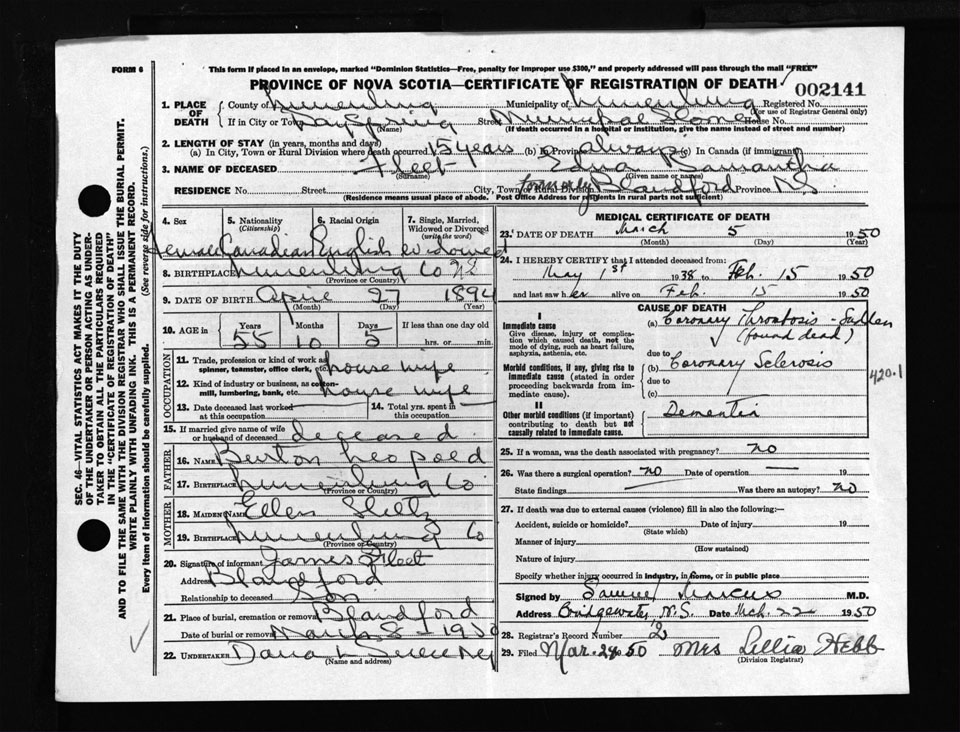 FORM 6
This form if placed in an envelope, marked "Dominion Statistics—Free, penalty for improper use $300," and properly addressed will pass through the mail "FREE"
PROVINCE OF NOVA SCOTIA—CERTIFICATE OF REGISTRATION OF DEATH
002141
1. PLACE OF DEATH
County of Lunenburg Municipality of Lunenburg Registered No.
(For use of Registrar General only)
If in City or Town DaySpring Street Municipal Home House No.
(Name) (If death occurred in a hospital or institution, give the name instead of street and number)
2. LENGTH OF STAY (in years, months and days)
(a) In City, Town or Rural Division where death occurred 15 years (b) in always (c) In Canada (if immigrant)
3. NAME OF DECEASED Fleet Edna Samantha
(Surname) (Given name or names)
RESIDENCE No. Street City, Town or Rural Division formerly Blandford Province N.S.
(Residence means usual place of abode. Post Office Address for residents in rural parts not sufficient)
4. Sex
5. Nationality (Citizenship)
6. Racial Origin
7. Single, Married, Widowed or Divorced (write the word)
Female Canadian English widowed
8. BIRTHPLACE Lunenburg Co NS
(Province or Country)
9. DATE OF BIRTH April 27 1894
(Month) (Day) (Year)
10. AGE in Years Months Days If less than one day old
55 10 5 hrs. or min.
OCCUPATION
11. Trade, profession or kind of work as spinner, teamster, office clerk, etc. house wife
12. Kind of industry or business, as cotton-mill, lumbering, bank, etc. house wife
13. Date deceased last worked at this occupation
14. Total yrs. spent in this occupation
15. If married give name of wife or husband of deceased deceased
FATHER
16. Name Burton Leopold
17. Birthplace Lunenburg Co
(Province or Country)
MOTHER
18. Maiden Name Ellen
19. Birthplace Lunenburg Co
(Province or Country)
20. Signature of informant James Fleet
Address Blandford
Relationship to deceased Son
21. Place of burial, cremation or removal Blandford
Date of burial or removal March 8 - 1950
22. UNDERTAKER Dana L Sweeney
(Name and address)
MEDICAL CERTIFICATE OF DEATH
23. DATE OF DEATH March 5 1950
(Month) (Day) (Year)
24. I HEREBY CERTIFY that I attended deceased from:
May 1st 1938 to Feb. 15 1950
and last saw her alive on Feb. 15 1950
CAUSE OF DEATH
I
Immediate cause
Give disease, injury or complication which caused death, not the mode of dying, such as heart failure, asphyxia, asthenia, etc.
(a) Coronary Thrombosis - Sudden
(found dead)
due to
Morbid conditions, if any, giving rise to immediate cause (stated in order proceeding backwards from immediate cause).
(b) Coronary Sclerosis
due to
(c)
420.1
II
Other morbid conditions (if important) contributing to death but not causally related to immediate cause.
Dementia
25. If a woman, was the death associated with pregnancy? no
26. Was there a surgical operation? no Date of operation — 19
State findings Was there an autopsy? no
27. If death was due to external causes (violence) fill in also the following:—
Accident, suicide or homicide? Date of injury 19
(State which)
Manner of injury
(How sustained)
Nature of injury
Specify whether injury occurred in industry, in home, or in public place
Signed by Samuel Marcus M.D.
Address Bridgewater, N.S. Date Mch. 22 1950
28. Registrar's Record Number 2
29. Filed Mar. 28 1950 Mrs Lellia Hebb
(Division Registrar)
SEC. 46—VITAL STATISTICS ACT MAKES IT THE DUTY
OF THE UNDERTAKER OR PERSON ACTING AS UNDER-
TAKER TO OBTAIN ALL THE PARTICULARS REQUIRED
IN THE "CERTIFICATE OF REGISTRATION OF DEATH"
AND TO FILE THE SAME WITH THE DIVISION REGISTRAR WHO SHALL ISSUE THE BURIAL PERMIT.
WRITE PLAINLY WITH UNFADING INK. THIS IS A PERMANENT RECORD.
Every item of information should be carefully supplied. (See reverse side for instructions.)